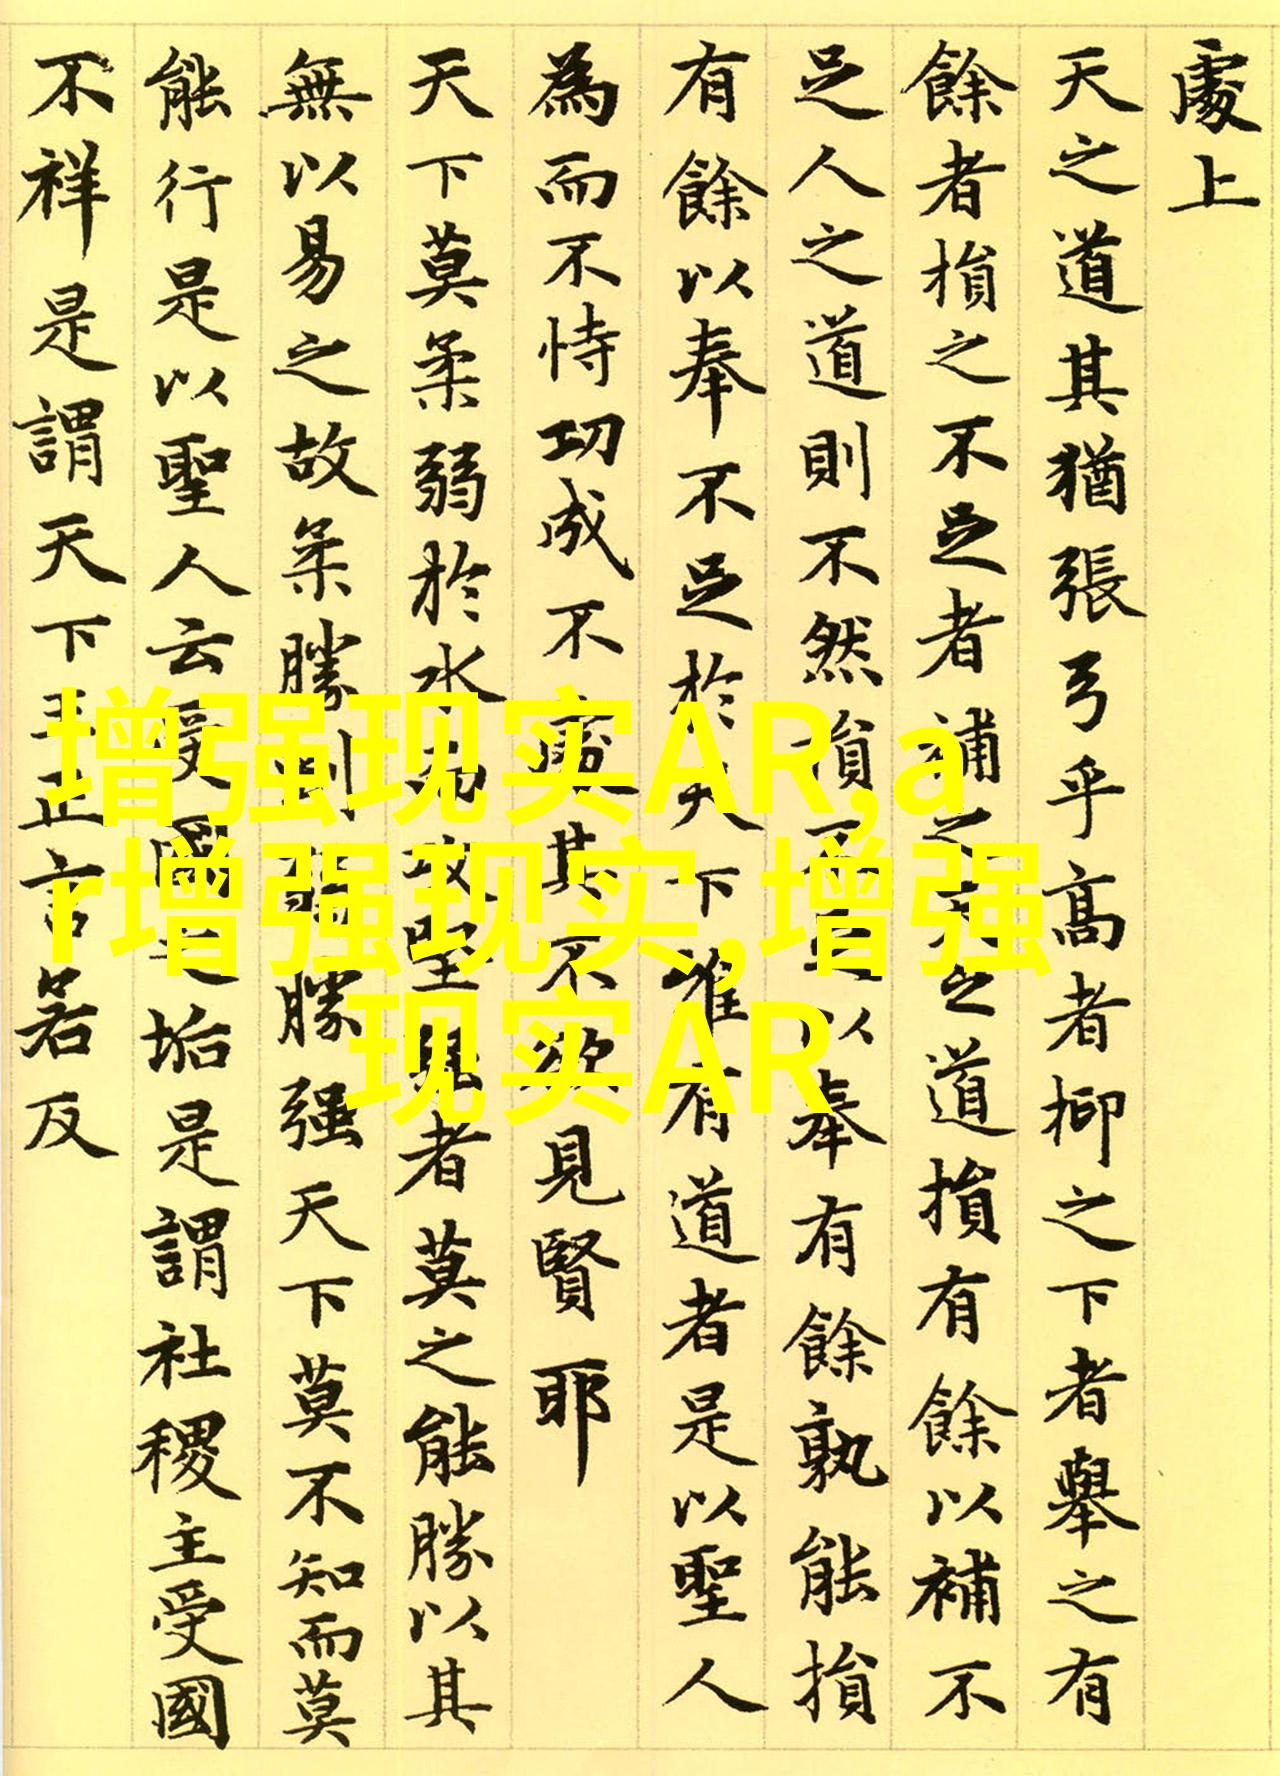 處上
天之道其猶張弓乎高者抑之下者舉之有
餘者損之不足者補之天之道損有餘以補不
足人之道則不然損不足以奉有餘孰能損
有餘以奉不足於天下唯有道者是以聖人
為而不恃功成不處其不欲見賢耶
天下莫柔弱於水而攻堅強者莫之能勝以其
無以易之故柔勝剛弱勝强天下莫不知而莫
能行是以聖人云受國之垢是謂社稷主受國
不祥是謂天下王正言若反
增强现实AR,a
r增强现实,增强
现实AR